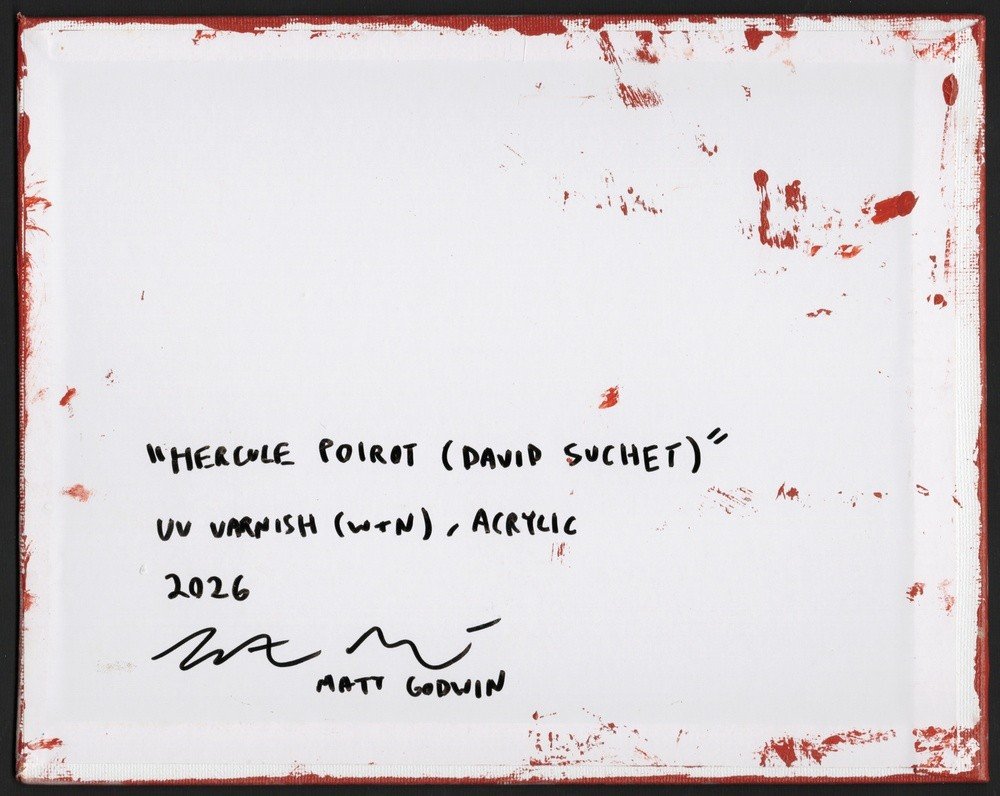 "HERCULE POIROT (DAVID SUCHET)"
UV VARNISH (W+N), ACRYLIC
2026
MATT GODWIN